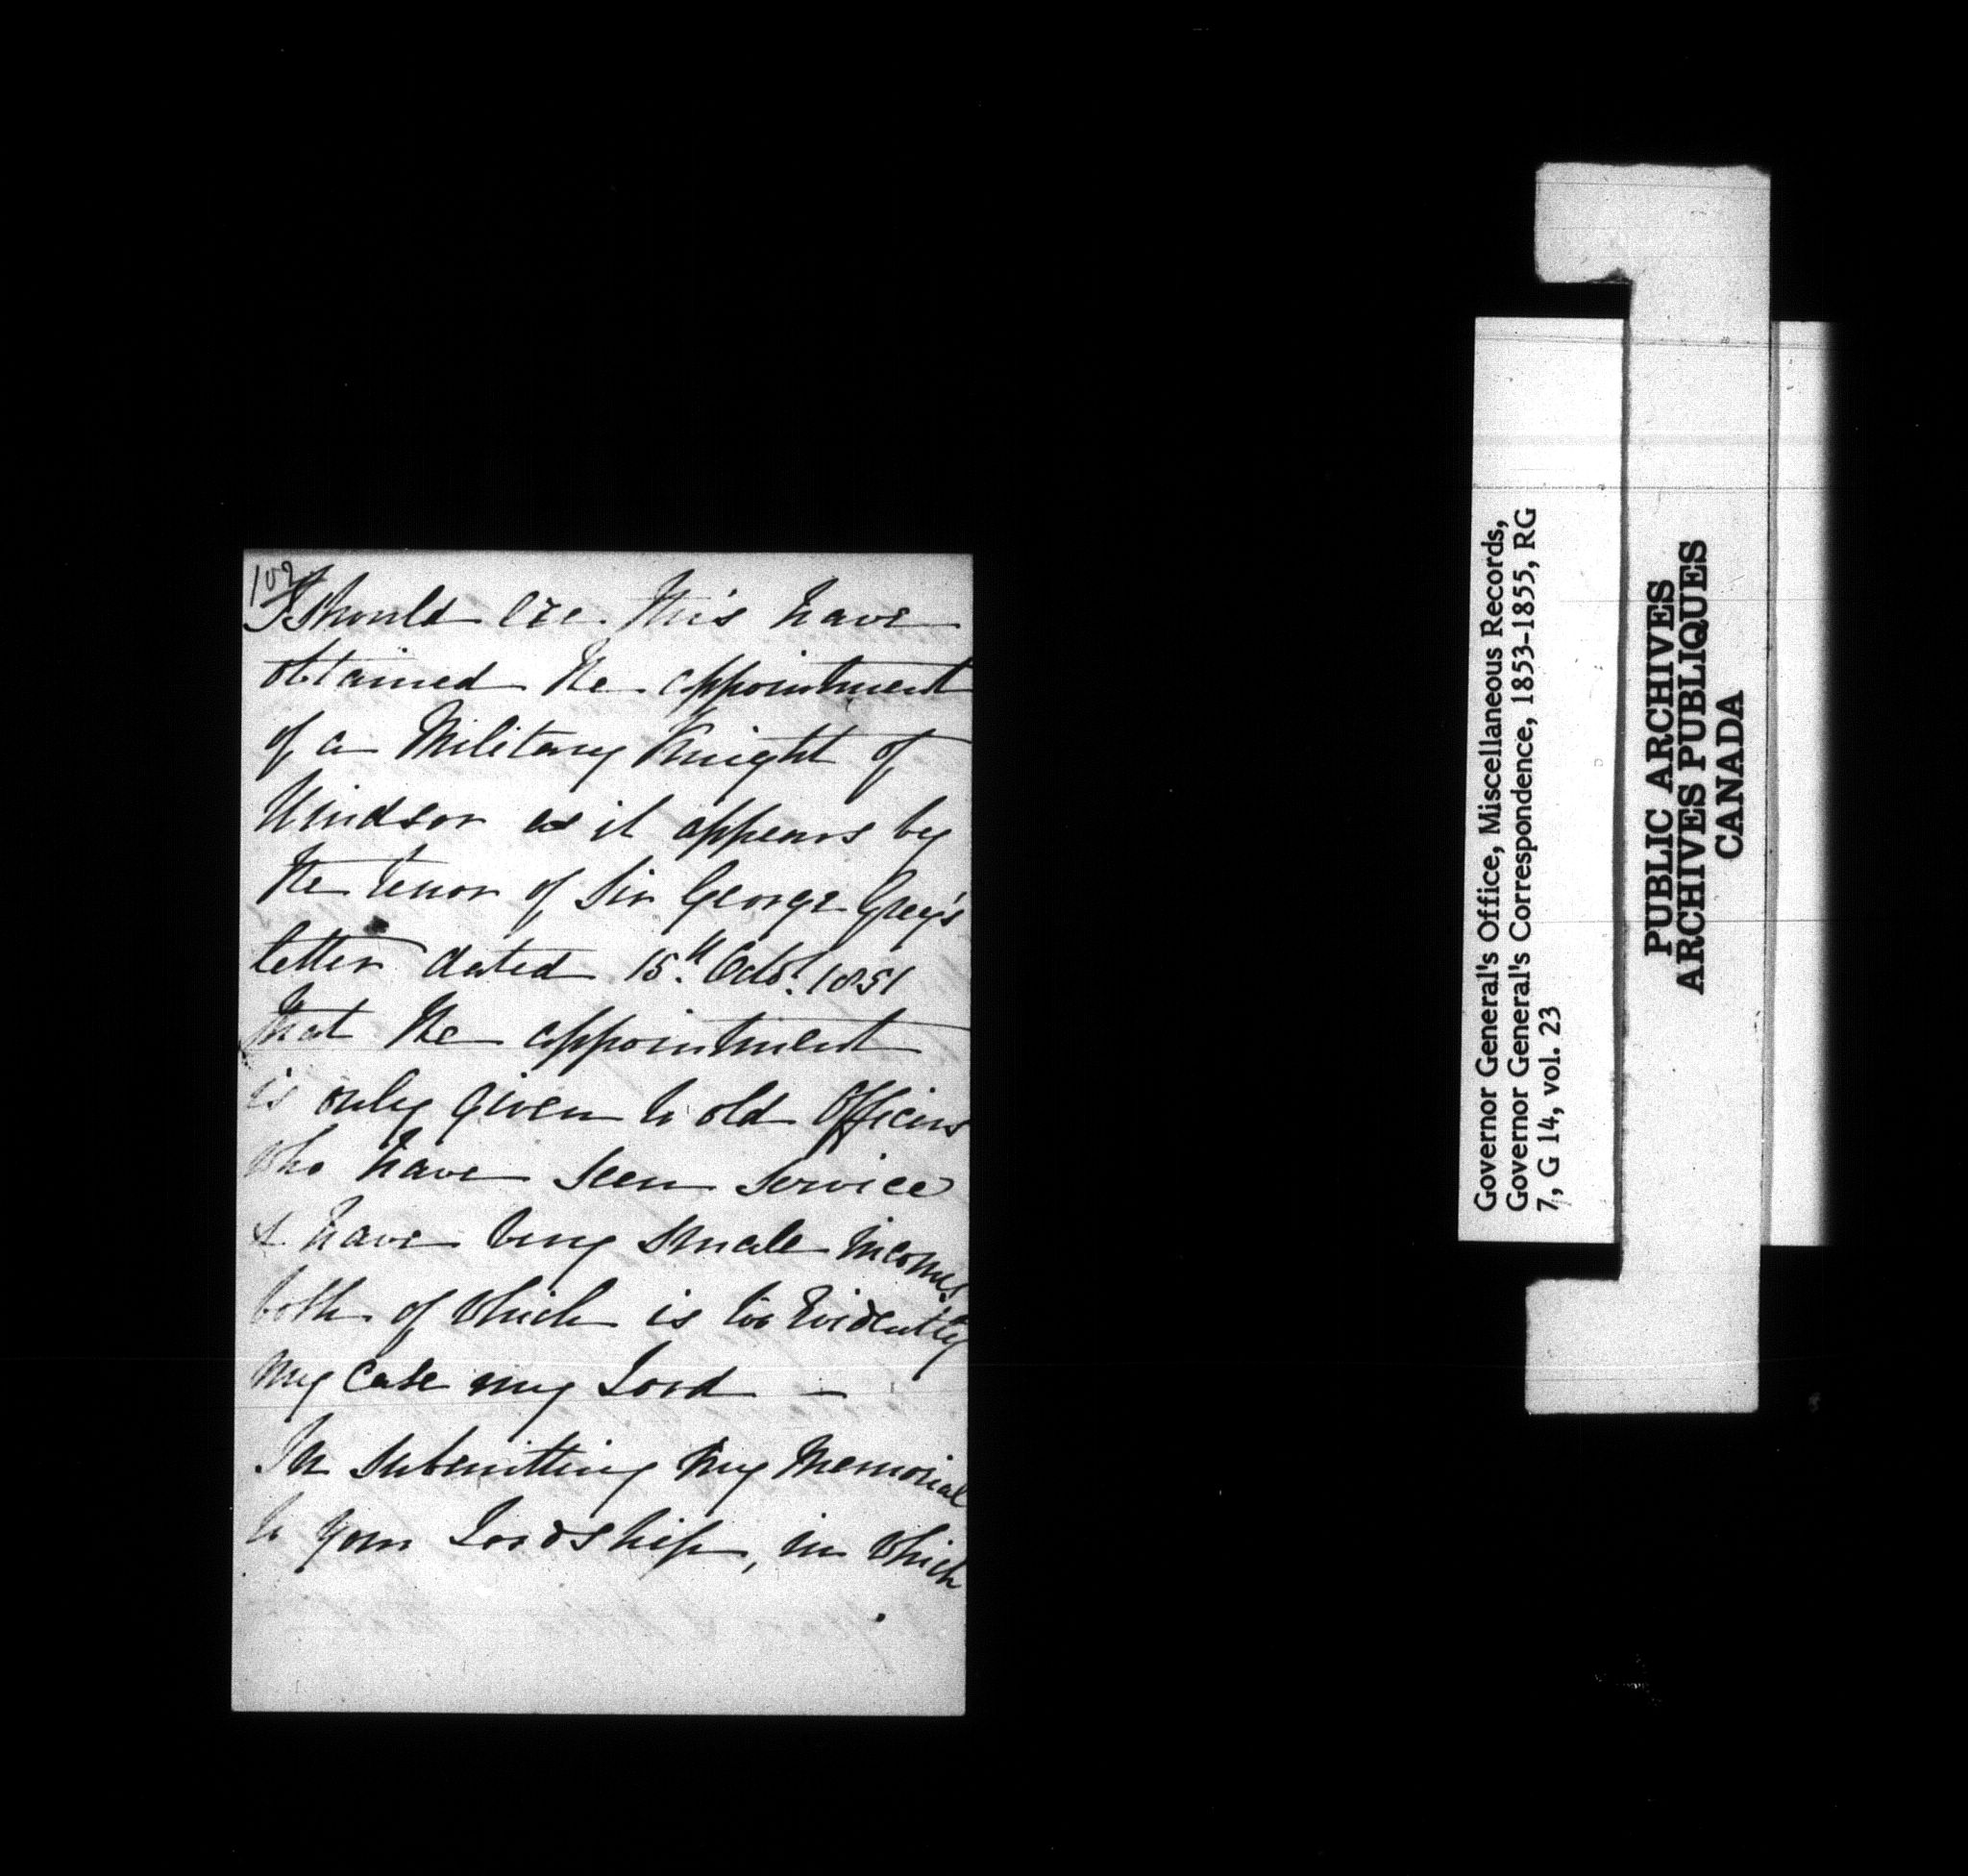 109
I should ere this have
obtained the appointment
of a Military Knight of
Windsor as it appears by
the tenor of Sir George Grey's
letter dated 15th Octr. 1851
that the appointment
is only given to old Officers
who have seen service
& have very small incomes
both of which is too Evidently
my case my Lord —
In submitting my Memorial
to your Lordship, in which
Governor General's Office, Miscellaneous Records,
Governor General's Correspondence, 1853-1855, RG
7, G 14, vol. 23
PUBLIC ARCHIVES
ARCHIVES PUBLIQUES
CANADA